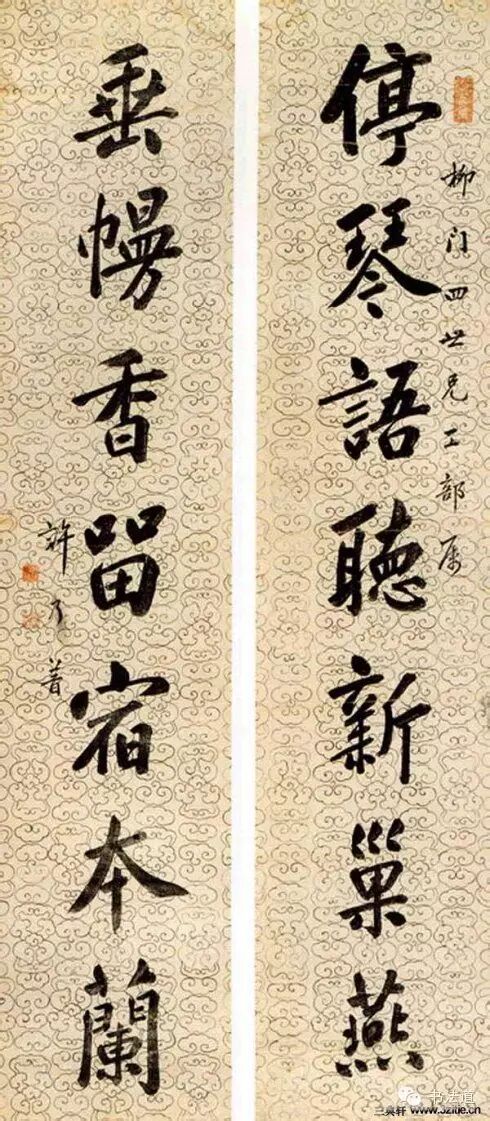 柳门四世兄工部属
停琴語聽新巢燕
垂幔香留宿本蘭
許乃普
书法道
三奥轩 www.3zitie.cn